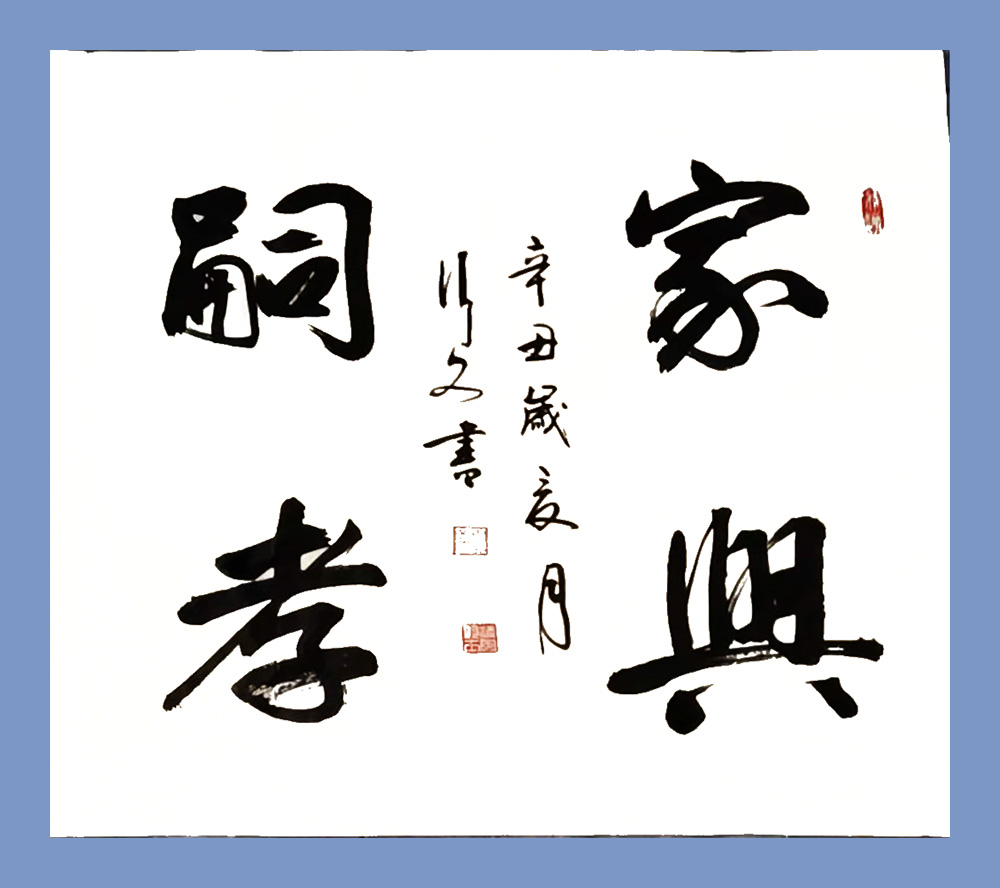 家興
辛丑歲夏月
文書
嗣孝